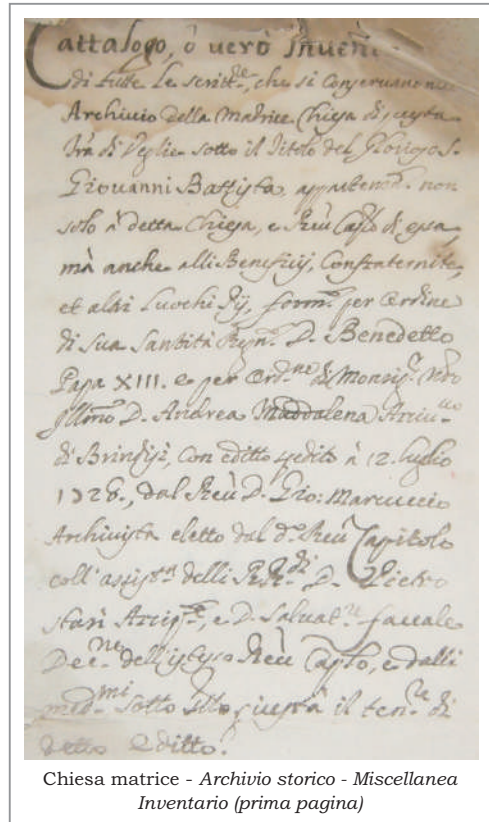 Cattalogo, ò verò Inuen
di tutte le scritt.re, che si conseruano ne
Archiuio della Matrice Chiesa di questa
Trà di Veglie sotto il Titolo del Glorioso S.
Giouanni Battista, appartenen. non
solo à detta Chiesa, e Reu. Caplo di essa,
mà anche alli Beneficij, Confraternite,
et altri Luochi Pij, form. per ordine
di Sua Santità Regn. D. Benedetto
Papa XIII. e per ord.ne di Monsig.r Nrò
Illmo D. Andrea Maddalena Arciu.uo
di Brindisi, con editto edito à 12. luglio
1726., dal Reu. D. Gio: Marcuccio
Archiuista eletto dal d.o Reu. Capitolo
coll' assist.a delli RR.di D. Pietro
Arcip.te, e D. Saluat.re Faccale
dell'istesso Reu. Caplo, e dalli
med.mi sotto iuxtà il ten.re di
detto Editto.
Chiesa matrice - Archivio storico - Miscellanea
Inventario (prima pagina)